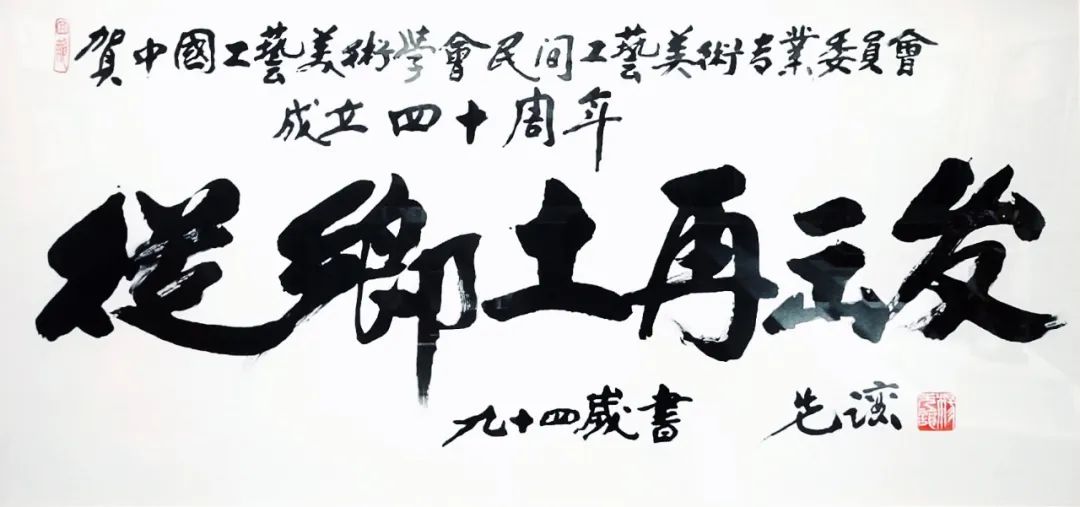 賀中國工藝美術学會民间工藝美術专業委員會
成立四十周年
從鄉土再出发
九十四歲書 先讓